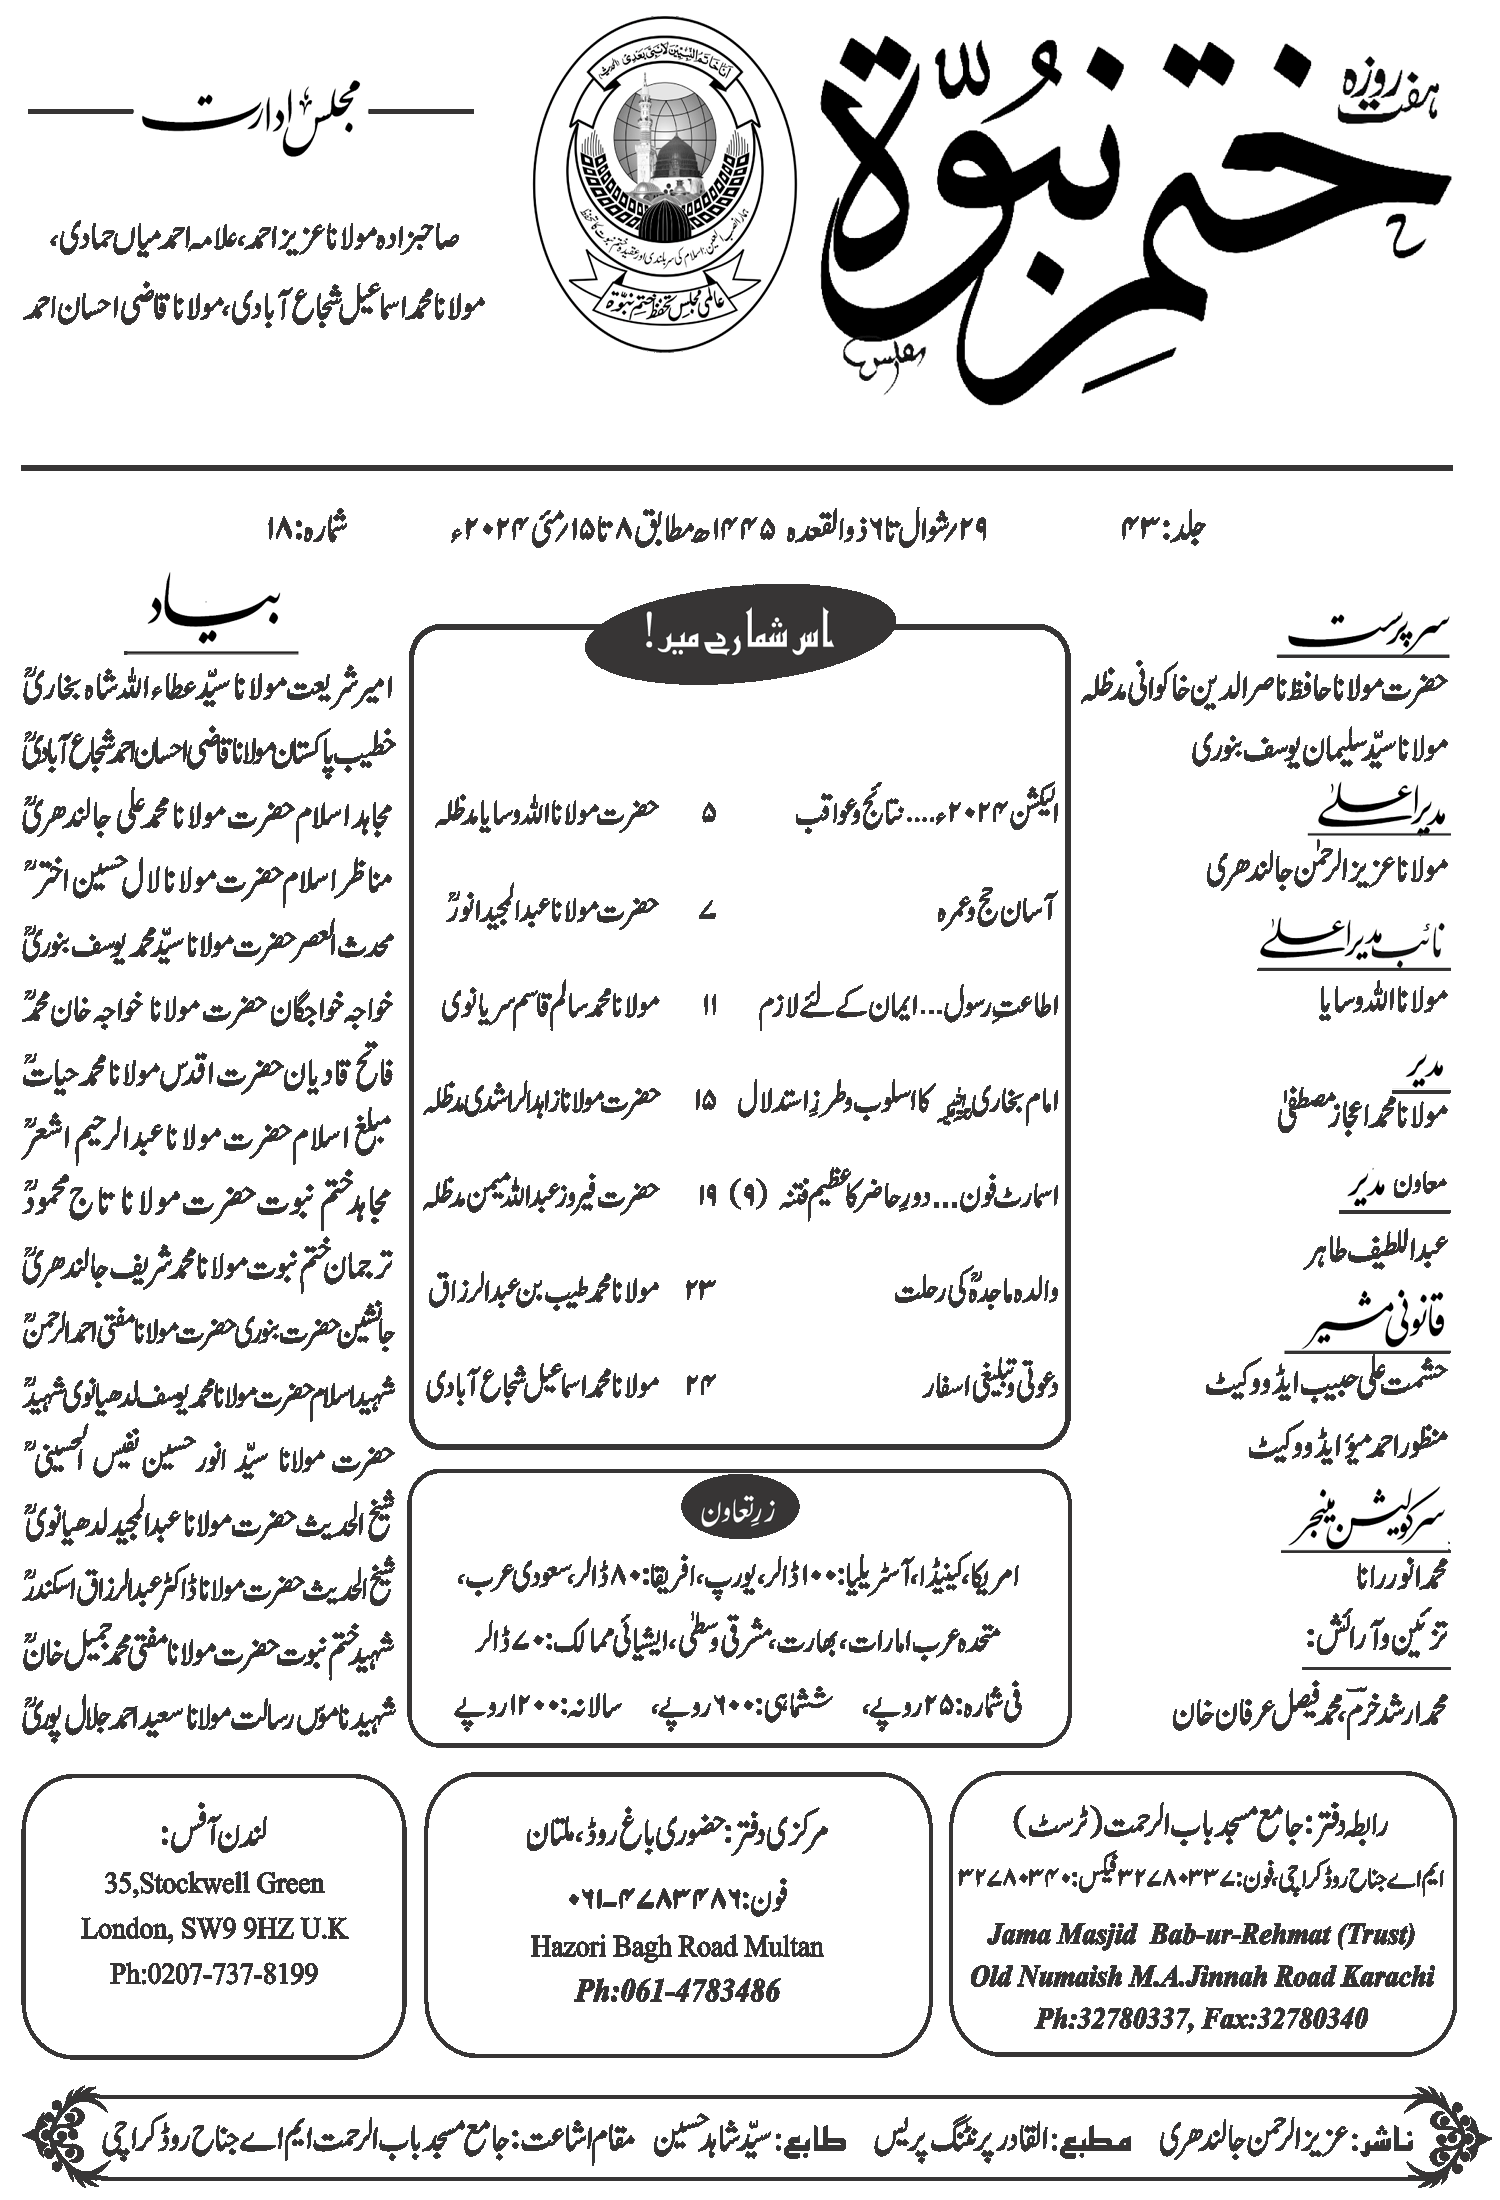 ہفت روزہ
ختم نبوّۃ
انا خاتم النبیین لا نبی بعدی
عالمی مجلس تحفظ ختم نبوّۃ
مجلس ادارت
صاحبزادہ مولانا عزیز احمد، علامہ احمد میاں حمادی،
مولانا محمد اسماعیل شجاع آبادی، مولانا قاضی احسان احمد
جلد: ۴۳
۲۹؍شوال تا ۶ ذوالقعدہ ۱۴۴۵ھ مطابق ۸ تا ۱۵؍مئی ۲۰۲۴ء
شمارہ: ۱۸
سرپرست
حضرت مولانا حافظ ناصر الدین خاکوانی مدظلہ
مولانا سیّد سلیمان یوسف بنوری
مدیر اعلیٰ
مولانا عزیز الرحمٰن جالندھری
نائب مدیر اعلیٰ
مولانا اللہ وسایا
مدیر
مولانا محمد اعجاز مصطفیٰ
معاون مدیر
عبداللطیف طاہر
قانونی مشیر
حشمت علی حبیب ایڈووکیٹ
منظور احمد میؤ ایڈووکیٹ
سرکولیشن مینجر
محمد انور رانا
تزئین و آرائش:
محمد ارشد خرم، محمد فیصل عرفان خان
اس شمارے میں!
الیکشن ۲۰۲۴ء.... نتائج و عواقب ۵ حضرت مولانا اللہ وسایا مدظلہ
آسان حج و عمرہ ۷ حضرت مولانا عبدالمجید انورؒ
اطاعتِ رسول... ایمان کے لئے لازم ۱۱ مولانا محمد سالم قاسم سریانوی
امام بخاریؒ کا اسلوب و طرزِ استدلال ۱۵ حضرت مولانا زاہد الراشدی مدظلہ
اسمارٹ فون... دورِ حاضر کا عظیم فتنہ (۹) ۱۹ حضرت فیروز عبداللہ میمن مدظلہ
والدہ ماجدہؒ کی رحلت ۲۳ مولانا محمد طیب بن عبدالرزاق
دعوتی و تبلیغی اسفار ۲۴ مولانا محمد اسماعیل شجاع آبادی
زرِ تعاون
امریکا، کینیڈا، آسٹریلیا: ۱۰۰ ڈالر، یورپ، افریقا: ۸۰ ڈالر، سعودی عرب،
متحدہ عرب امارات، بھارت، مشرقِ وسطیٰ، ایشیائی ممالک: ۷۰ ڈالر
فی شمارہ: ۲۵ روپے، ششماہی: ۶۰۰ روپے، سالانہ: ۱۲۰۰ روپے
بیاد
امیر شریعت مولانا سیّد عطاء اللہ شاہ بخاریؒ
خطیب پاکستان مولانا قاضی احسان احمد شجاع آبادیؒ
مجاہد اسلام حضرت مولانا محمد علی جالندھریؒ
مناظر اسلام حضرت مولانا لال حسین اخترؒ
محدث العصر حضرت مولانا سیّد محمد یوسف بنوریؒ
خواجہ خواجگان حضرت مولانا خواجہ خان محمدؒ
فاتح قادیان حضرت اقدس مولانا محمد حیاتؒ
مبلغ اسلام حضرت مولانا عبدالرحیم اشعرؒ
مجاہد ختم نبوت حضرت مولانا تاج محمودؒ
ترجمان ختم نبوت مولانا محمد شریف جالندھریؒ
جانشین حضرت بنوری حضرت مولانا مفتی احمد الرحمنؒ
شہید اسلام حضرت مولانا محمد یوسف لدھیانوی شہیدؒ
حضرت مولانا سیّد انور حسین نفیس الحسینیؒ
شیخ الحدیث حضرت مولانا عبدالمجید لدھیانویؒ
شیخ الحدیث حضرت مولانا ڈاکٹر عبدالرزاق اسکندرؒ
شہید ختم نبوت حضرت مولانا مفتی محمد جمیل خانؒ
شہید ناموس رسالت مولانا سعید احمد جلال پوریؒ
رابطہ دفتر: جامع مسجد باب الرحمت (ٹرسٹ)
ایم اے جناح روڈ کراچی، فون: ۳۲۷۸۰۳۳۷ فیکس: ۳۲۷۸۰۳۴۰
Jama Masjid Bab-ur-Rehmat (Trust)
Old Numaish M.A.Jinnah Road Karachi
Ph:32780337, Fax:32780340
مرکزی دفتر: حضوری باغ روڈ، ملتان
فون: ۰۶۱-۴۷۸۳۴۸۶
Hazori Bagh Road Multan
Ph:061-4783486
لندن آفس:
35,Stockwell Green
London, SW9 9HZ U.K
Ph:0207-737-8199
ناشر: عزیز الرحمن جالندھری مطبع: القادر پرنٹنگ پریس طابع: سیّد شاہد حسین مقام اشاعت: جامع مسجد باب الرحمت ایم اے جناح روڈ کراچی